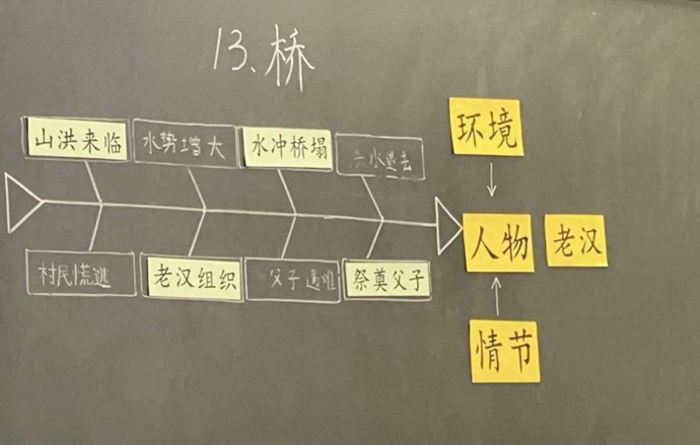 13、桥
山洪来临
水势增大
水冲桥塌
洪水退去
环境
人物
老汉
村民慌逃
老汉组织
父子遇难
祭奠父子
情节